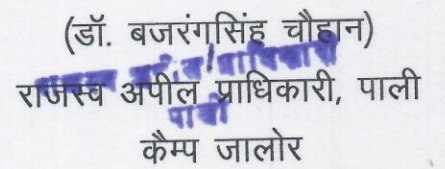 (डॉ. बजरंगसिंह चौहान)
राजस्व अपील प्राधिकारी, पाली
पाली
कैम्प जालोर